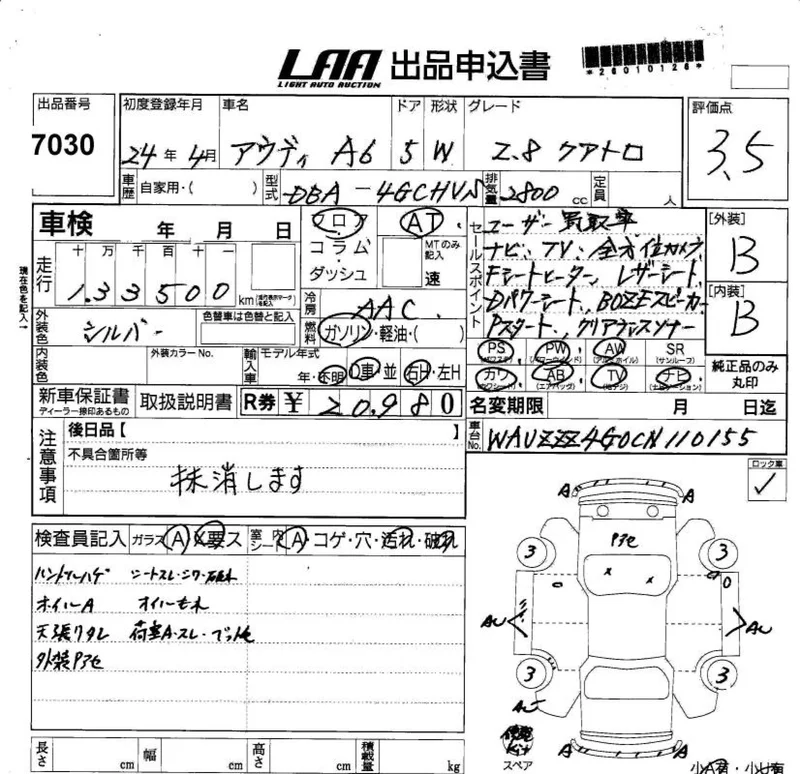 LAA 出品申込書
LIGHT AUTO AUCTION
*26010126*
出品番号 初度登録年月 車名 ドア 形状 グレード 評価点
7030 24年 4月 アウディ A6 5 W 2.8 クアトロ 3.5
車歴 自家用・( ) 型式 DBA-4GCHVS 排気量 2800 cc 定員 人
車検 年 月 日 フロア AT セールスポイント ユーザー買取車 [外装]
コラム MTのみ記入 ナビ、TV、全方位カメラ B
ダッシュ 速 Fシートヒーター、レザーシート、
走行 十 万 千 百 十 一
133500 km
現在色を記入→
冷房 AAC Dパワーシート、BOZEスピーカー [内装]
外装色 シルバー 色替車は色替と記入 燃料 ガソリン・軽油・( ) Pスタート、クリアランスソナー B
PS PW AW SR
(パワステ) (パワーウィンド) (アルミホイル) (サンルーフ)
カワ AB TV ナビ
(カワシート) (エアバッグ) (ナビゲーション)
純正品のみ丸印
内装色 外装カラーNo. 輸入車 モデル年式 年・不明 D車・並 右H・左H
新車保証書 取扱説明書 R券 ¥ 20980 名変期限 月 日迄
ディーラー捺印あるもの
車台No. WAUZZZ4G0CN110155
注意事項 後日品【 】
不具合箇所等
抹消します
ロック車
検査員記入 ガラス A X要ス 室内シート A・コゲ・穴・汚れ・破れ
ハンドルハゲ シートスレ・シワ・破れ
ホイルA オイルもれ
天張りタレ 荷室A・スレ・デント他
外装アセ
A A
アセ
3 3
AU AU
3 3
A A
スペア
長さ cm 幅 cm 高さ cm 積載量 kg
小A有・小U有